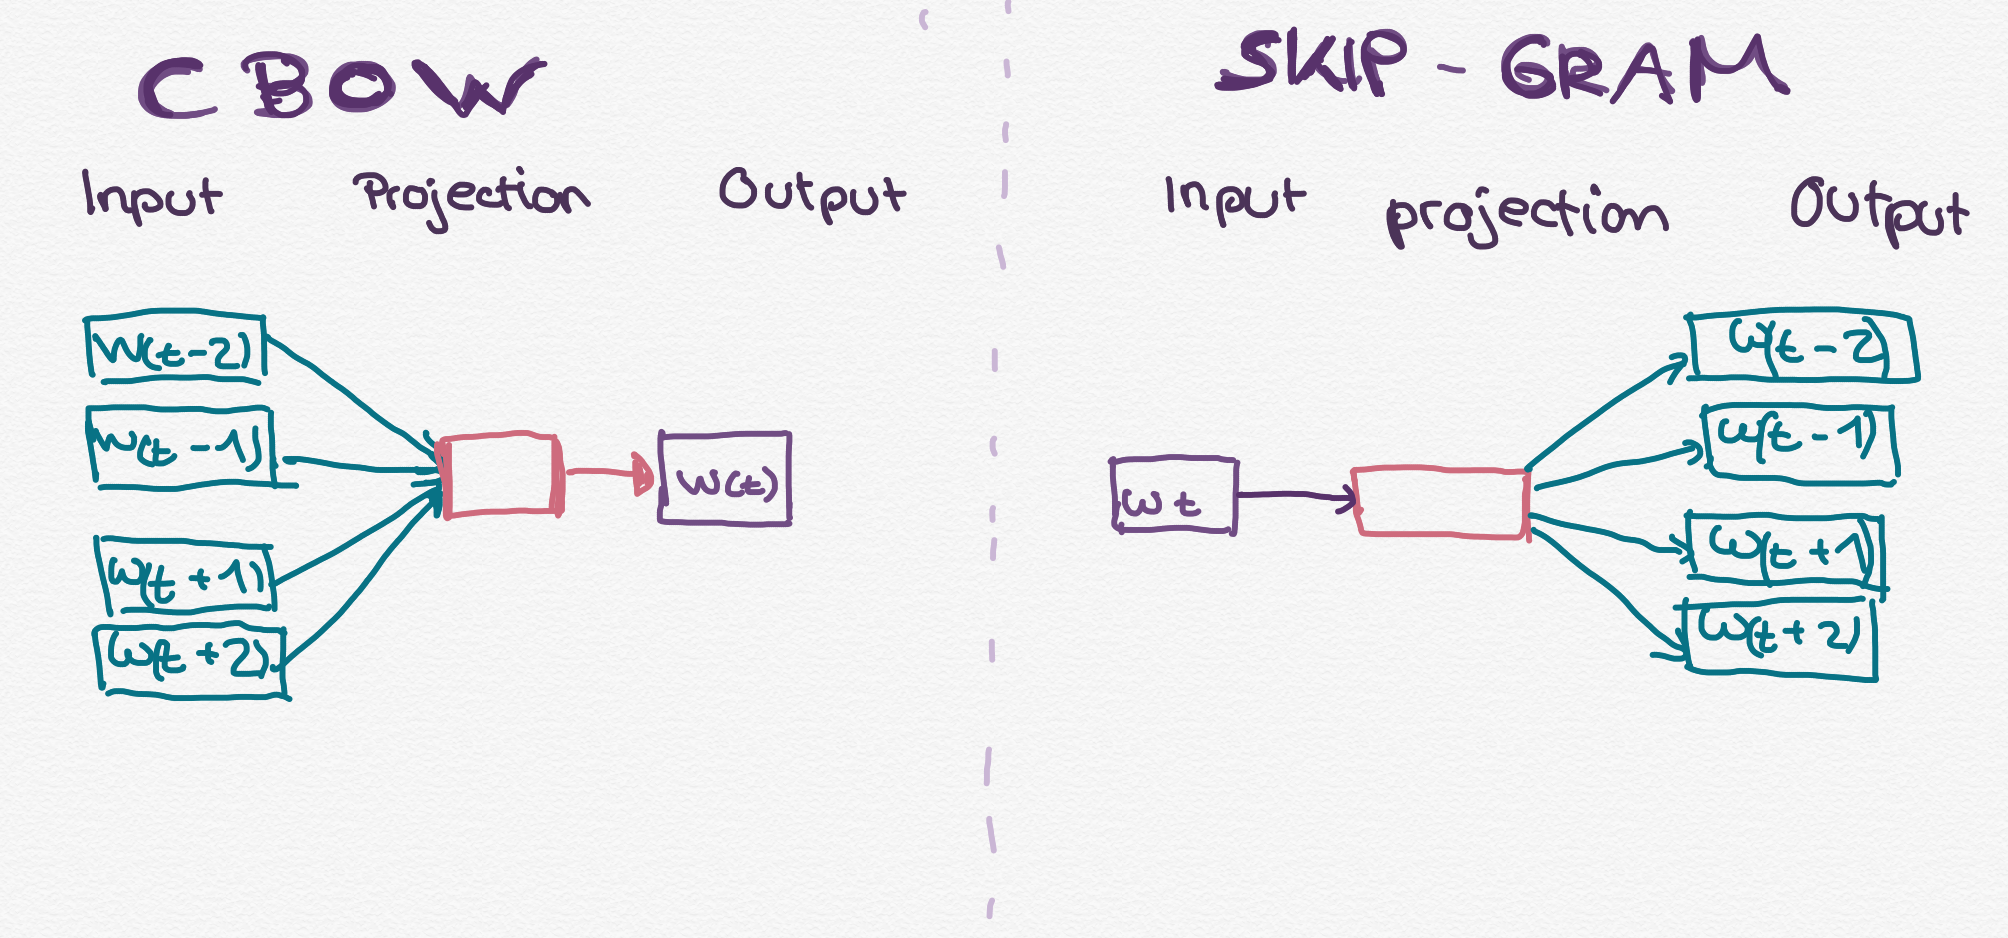 CBOW
Input Projection Output
W(t-2)
W(t-1)
W(t+1)
W(t+2)
W(t)
SKIP-GRAM
Input projection Output
W t
W(t-2)
W(t-1)
W(t+1)
W(t+2)